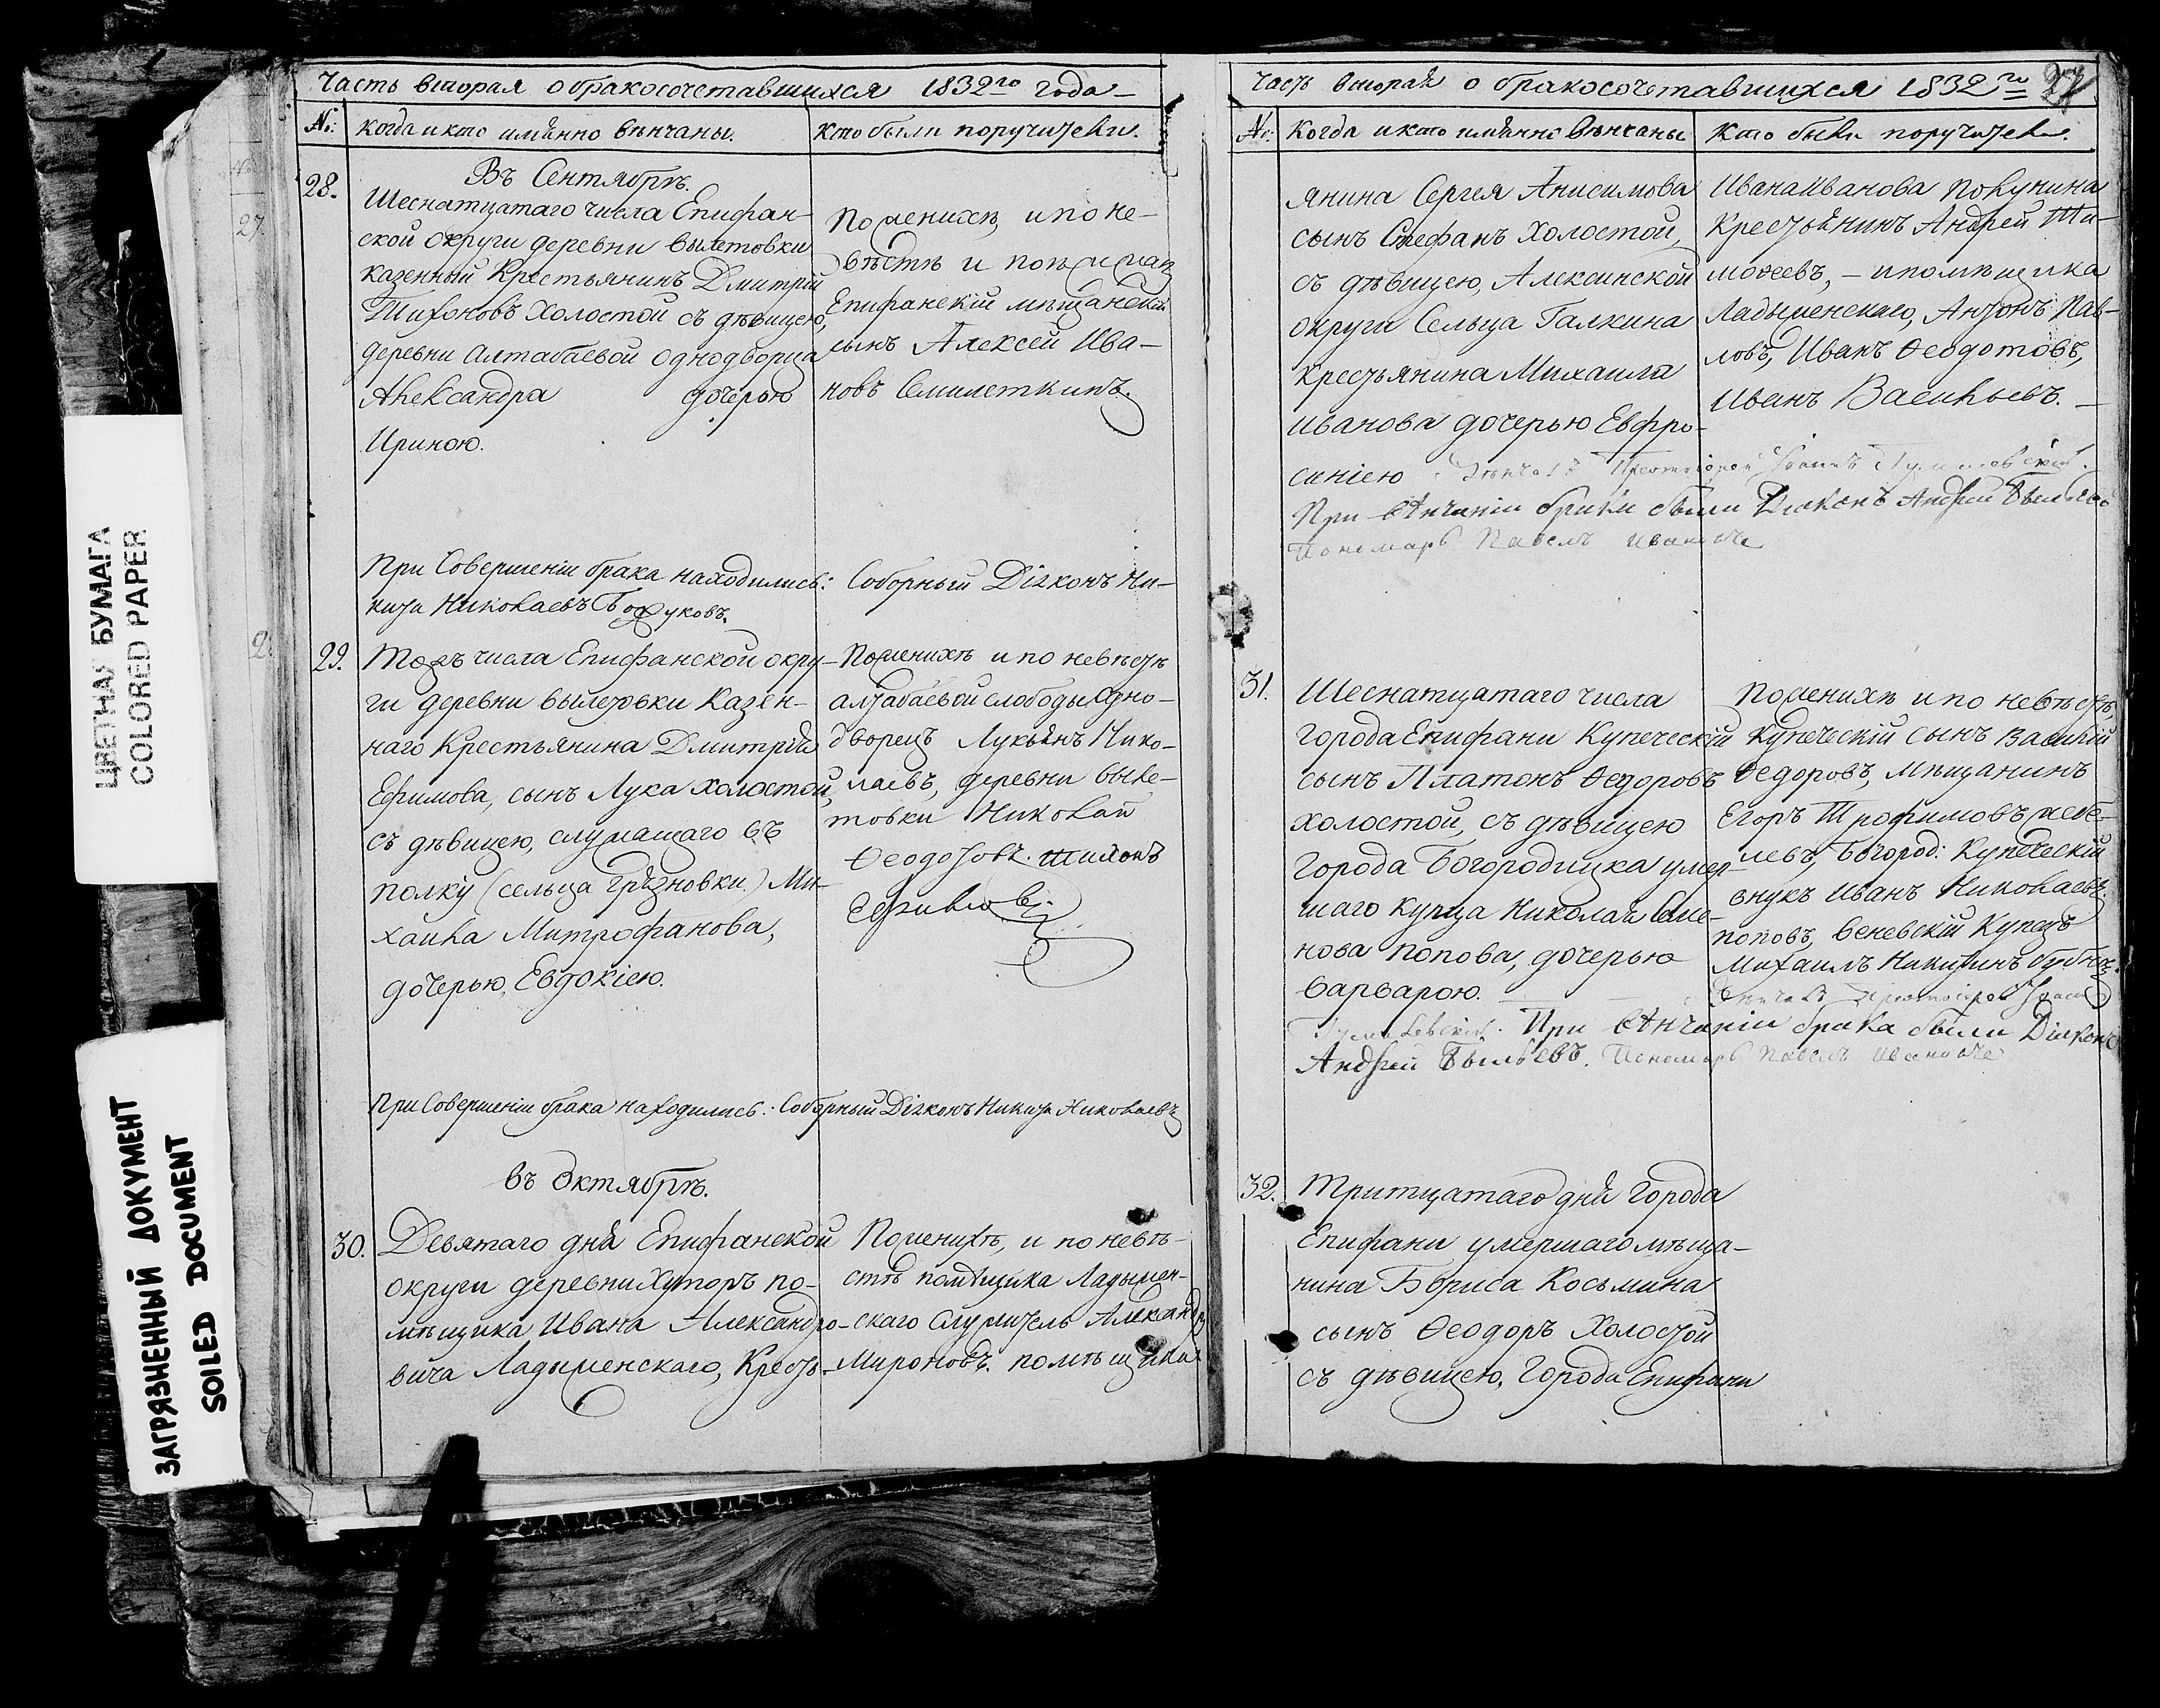 Часть вторая о бракосочетавшихся 1832го года
№: Когда и кто имянно вѣнчаны. Кто были поручители.
Въ Сентябрѣ.
28. Шеснатцатаго числа Епифан-
ской округи деревни Вылетовки
казенный Крестьянинъ Дмитрий
Тихоновъ Холостой съ дѣвицею,
деревни Алтабаевой однодворца
Александра дочерью
Ириною.
По женихѣ и по не-
вѣстѣ
Епифанскій мѣщанской
сынъ Алексей Ива-
новъ Семилеткинъ.
При Совершеніи брака находились: Соборный Діяконъ Ни-
кита Николаевъ
29. Тогожъ числа Епифанской окру-
ги деревни Вылетовки Казен-
наго Крестьянина Дмитрія
Ефимова, сынъ Лука холостой,
съ дѣвицею, служащаго въ
полку (сельца Грязновки) Ми-
хайла Митрофанова,
дочерью, Евдокіею.
По женихѣ и по невѣстѣ
Алтабаевой слободы Одно-
дворецъ Лукьянъ Нико-
лаевъ, деревни Выле-
товки Николай
Ѳеодотовъ. Тихонъ
При Совершеніи брака находились: Соборный Діяконъ Никита Николаевъ
Въ Октябрѣ.
30. Девятаго дня Епифанской
округи деревни Хуторъ по-
мѣщика Ивана Александро-
вича Ладыженскаго, Кресть-
По женихѣ, и по невѣ-
стѣ помѣщика Ладыжен-
скаго Служитель Александръ
Мироновъ. помѣщика
Часть вторая о бракосочетавшихся 1832го 27
№: Когда и кто имянно вѣнчаны Кто были поручители.
янина Сергея Анисимова
сынъ Стефанъ Холостой,
съ дѣвицею, Алексинской
округи Сельца Галкина
крестьянина Михаила
Иванова дочерью Евфро-
синіею
Ивана Иванова Покунина
Крестьянинъ Андрей Ти-
моѳеевъ, - и помѣщика
Ладыженскаго, Антонъ Пав-
ловъ, Иванъ Ѳеодотовъ,
Иванъ Васильевъ.
Вѣнчалъ Протоіерей Іоаннъ
При вѣнчаніи брака были Діяконъ Андрей
Пономарь Павелъ Ивановъ
31. Шеснатцатаго числа
города Епифани Купеческій
сынъ Платонъ Ѳедоровъ
холостой, съ дѣвицею
города Богородицка умер-
шаго купца Николая Семе-
нова Попова, дочерью
Варварою.
По женихѣ и по невѣстѣ,
Купеческій сынъ Василій
Ѳедоровъ, Мѣщанинъ
Егоръ Трофимовъ
Богород: Купеческій
внукъ Иванъ Николаевъ
Поповъ, Веневскій Купецъ
Михаилъ Никитинъ
Вѣнчалъ Протоіерей Іоаннъ
При вѣнчаніи брака были Діяконъ
Андрей Пономарь Павелъ Ивановъ
32. Тритцатаго дня Города
Епифани умершаго мѣща-
нина Бориса Косьмина
сынъ Ѳеодоръ Холостой
съ дѣвицею, Города Епифани
ЦВЕТНАЯ БУМАГА
COLORED PAPER
ЗАГРЯЗНЕННЫЙ ДОКУМЕНТ
SOILED DOCUMENT